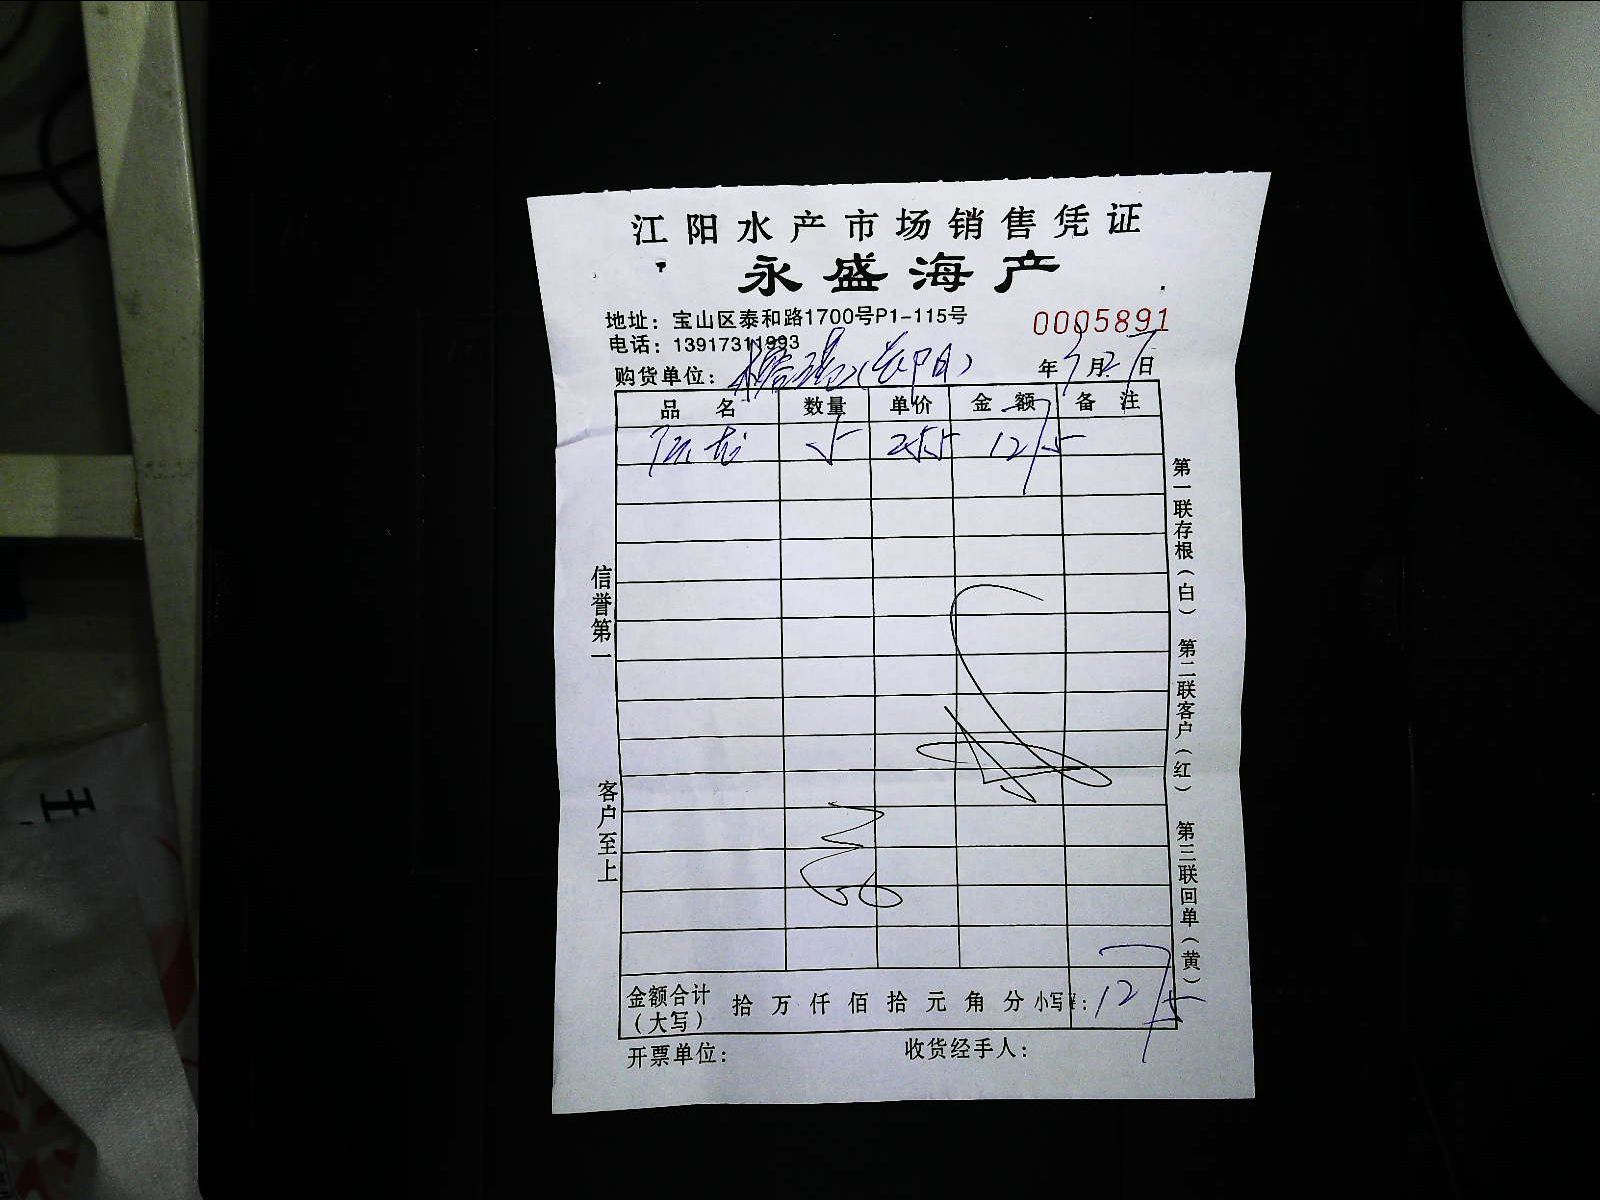 江阳水产市场销售凭证
永盛海产
地址：宝山区泰和路1700号P1-115号
0005891
电话：13917311993
购货单位： 年 月 27日
品名 数量 单价 金额 备注
5 255 1275
信誉第一 客户至上
第一联存根（白） 第二联客户（红） 第三联回单（黄）
金额合计（大写） 拾 万 仟 佰 拾 元 角 分 小写¥：1275
开票单位： 收货经手人：